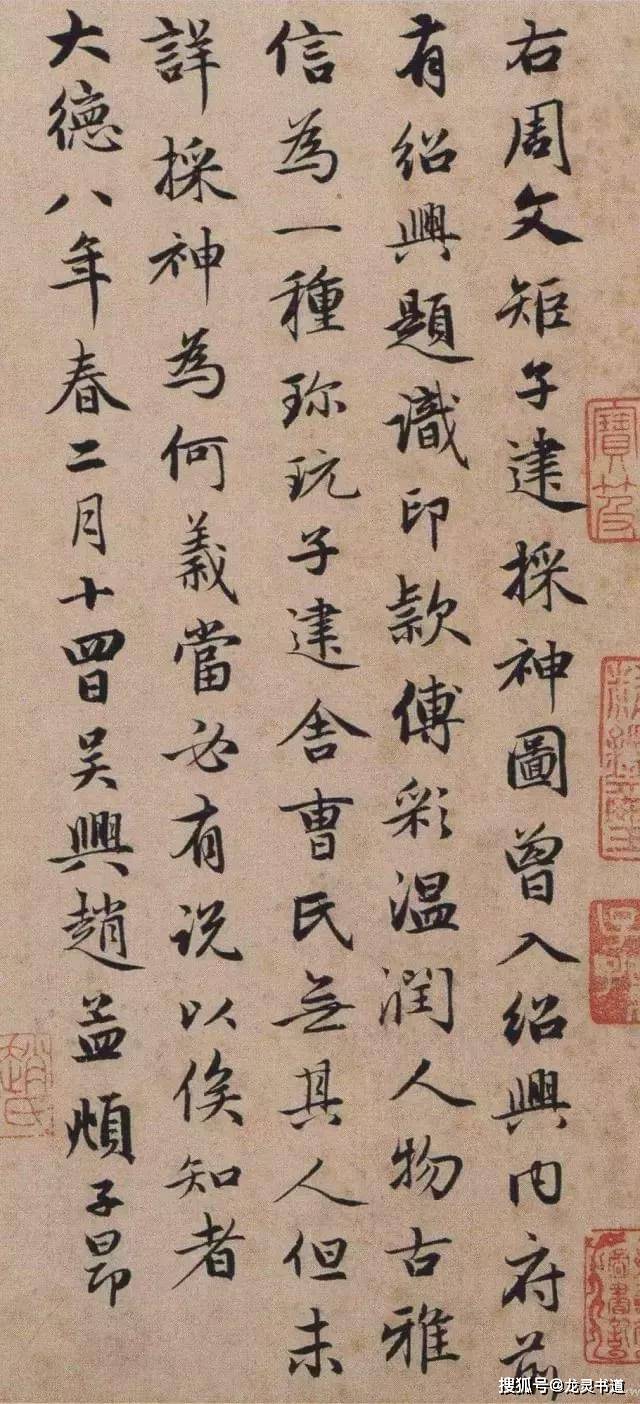 右周文矩子建採神圖曾入紹興內府前
有紹興題識印款傅彩溫潤人物古雅
信為一種珎玩子建舍曹氏無其人但未
詳採神為何義當必有說以俟知者
大德八年春二月十四日吴興趙孟頫子昂
趙氏
搜狐号@龙灵书道